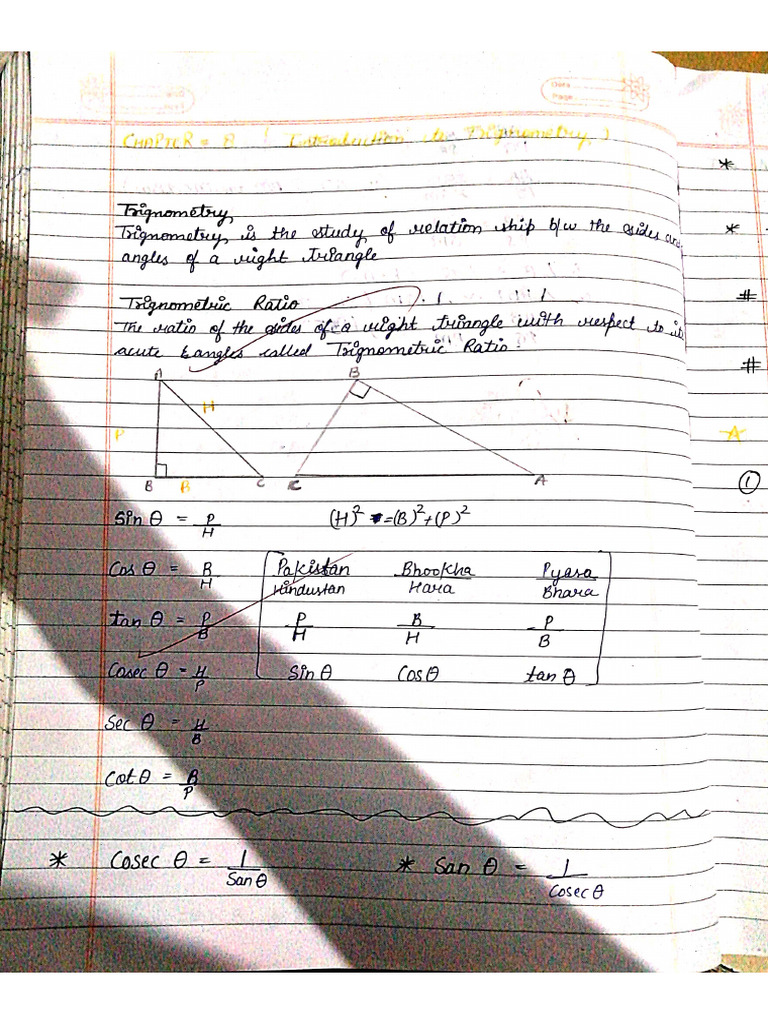 Date
Page
CHAPTER = 8 ( Introduction to Trignometry )
Trignometry
Trignometry is the study of relation ship b/w the sides and
angles of a right triangle
Trignometric Ratio
The ratio of the sides of a right triangle with respect to its
acute angles called Trignometric Ratio.
A B
H
P
B B C C A
Sin θ = P/H (H)² = (B)² + (P)²
Cos θ = B/H Pakistan/Hindustan Bhookha/Hara Pyasa/Bhara
tan θ = P/B P/H B/H P/B
Cosec θ = H/P Sin θ Cos θ tan θ
Sec θ = H/B
Cot θ = B/P
* Cosec θ = 1/San θ * San θ = 1/Cosec θ
*
*
#
#
A
①